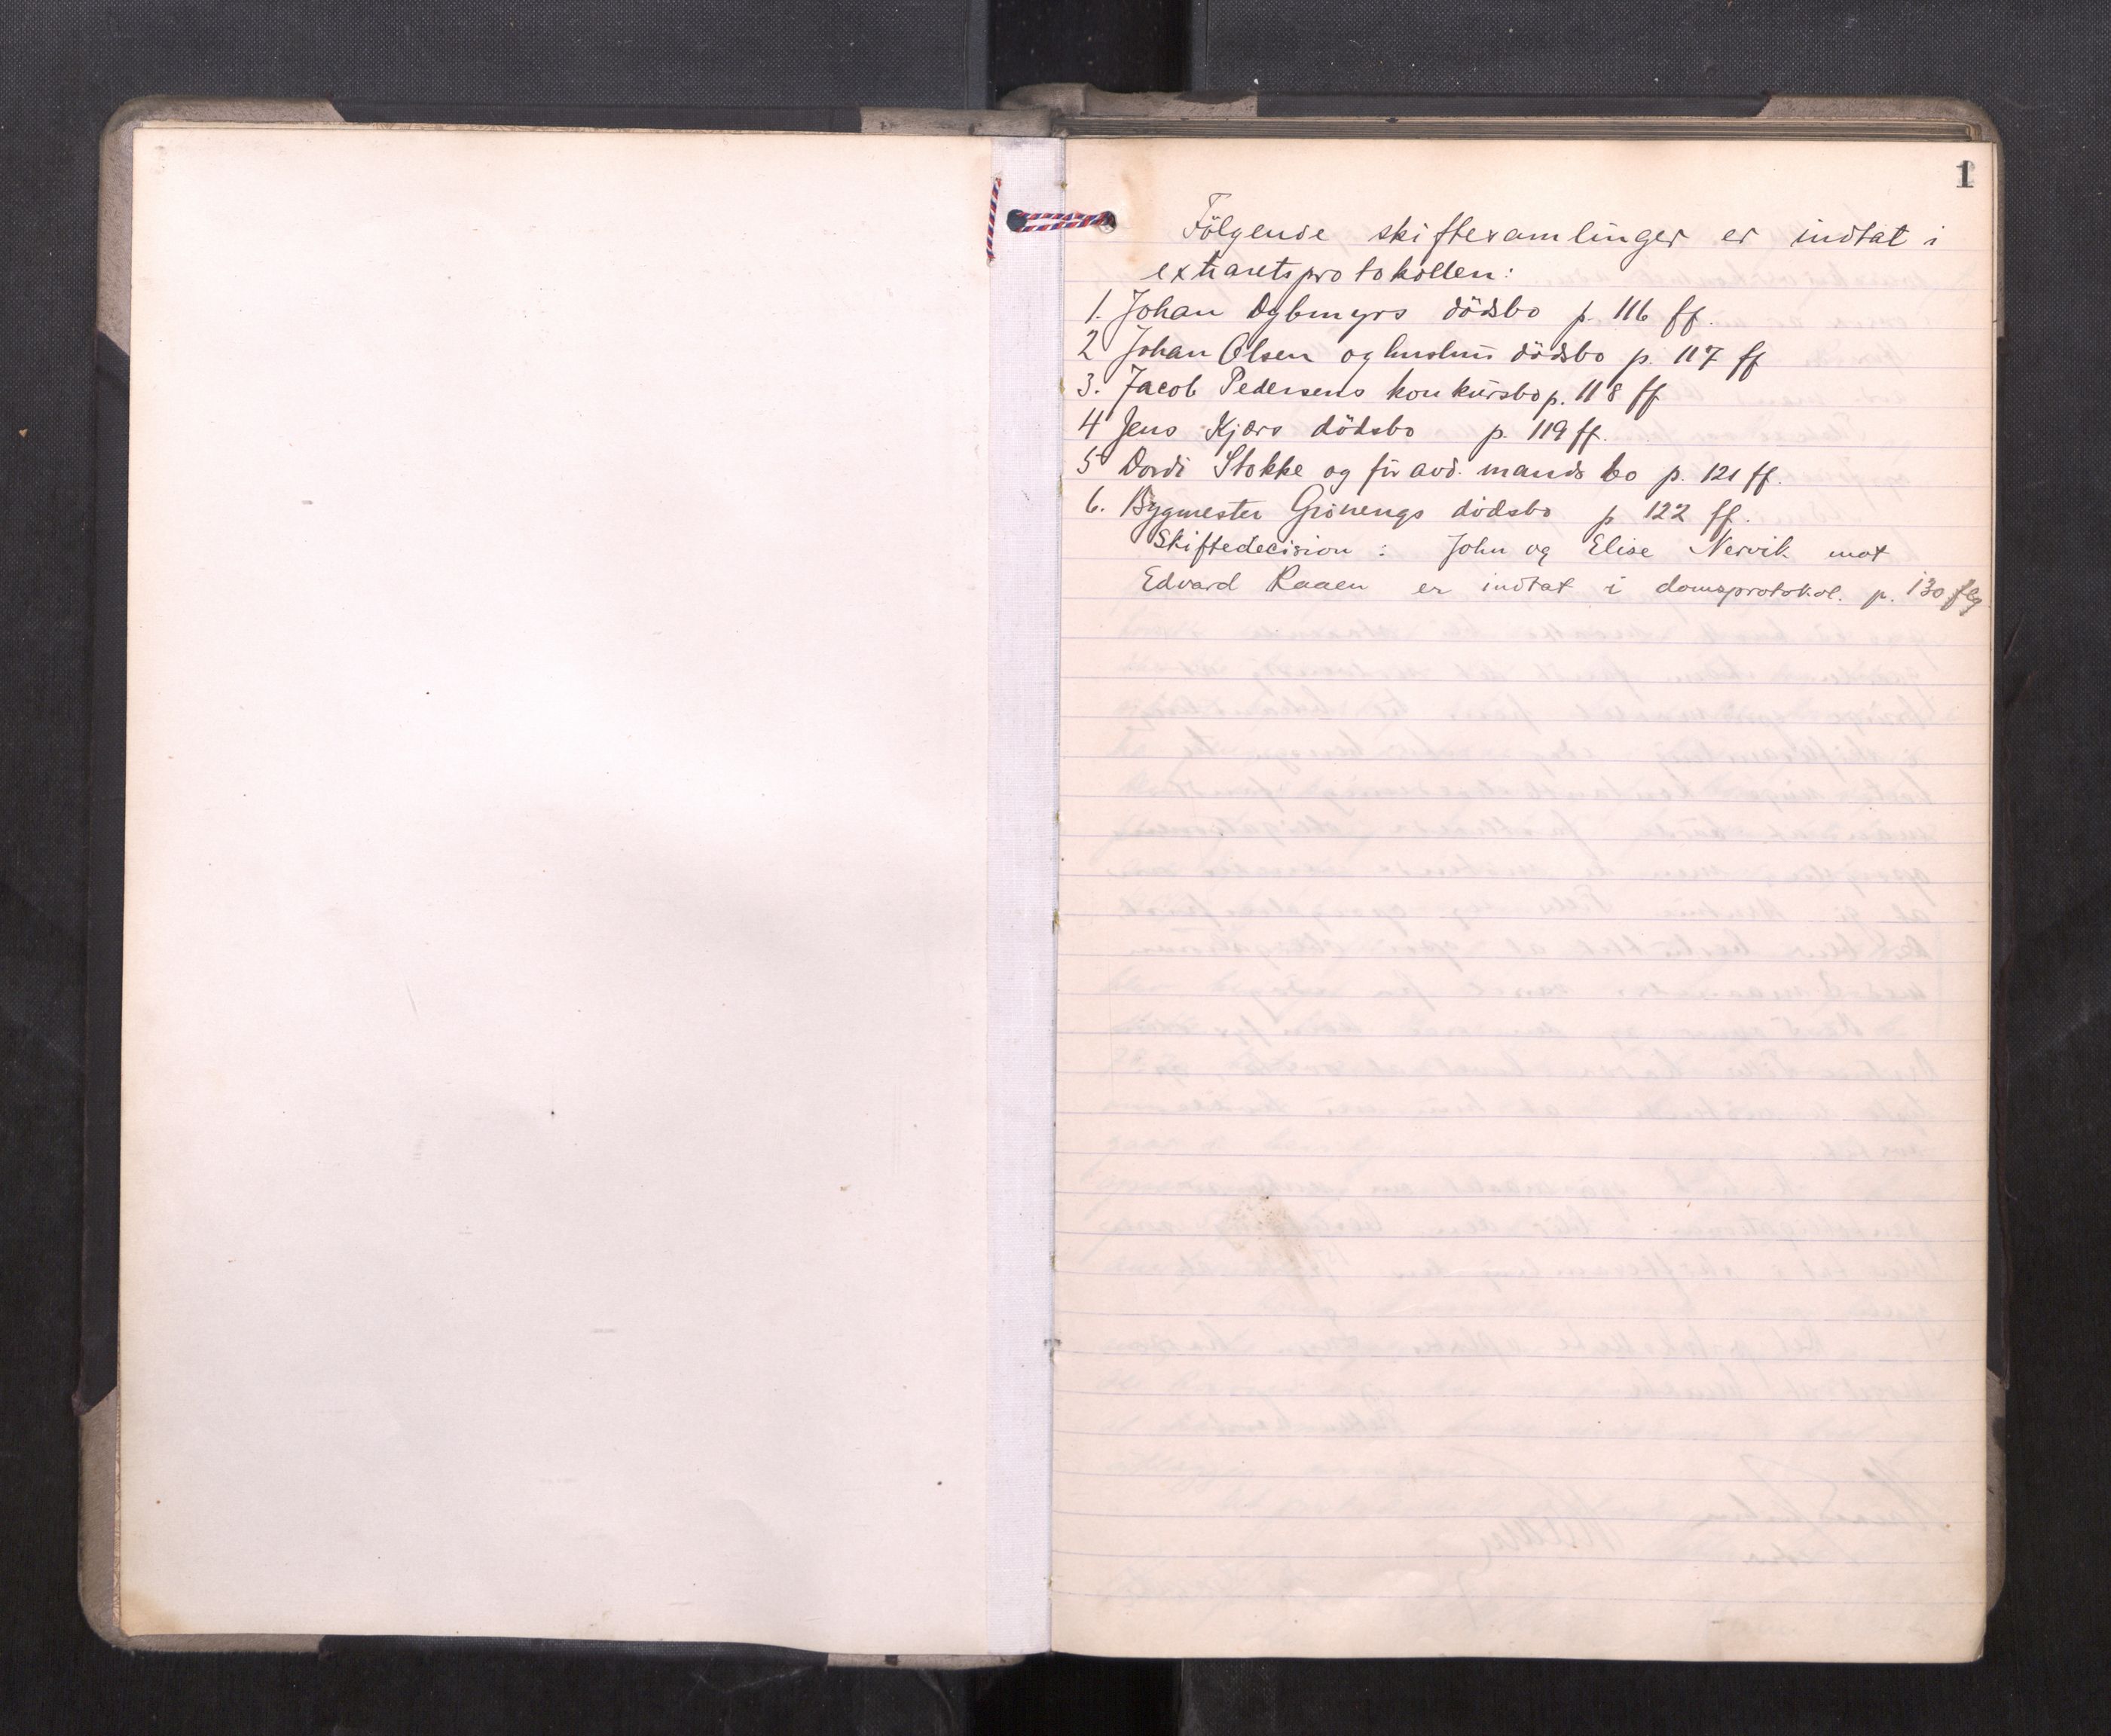 1
Følgende skiftesamlinger er indtat i
extraretsprotokollen:
1. Johan Dybmyrs dödsbo p. 116 ff.
2 Johan Olsen og hustrus dödsbo p. 117 ff
3. Jacob Pedersens konkursbo p. 118 ff
4 Jens Kjærs dödsbo p. 119 ff.
5 Dordi Stokke og før avd. mands bo p. 121 ff.
6. Bygmester Grönengs dödsbo p 122 ff.
Skiftedecision : John og Elise Nervik mot
Edvard Raaen er indtat i domsprotokol. p. 130 flg